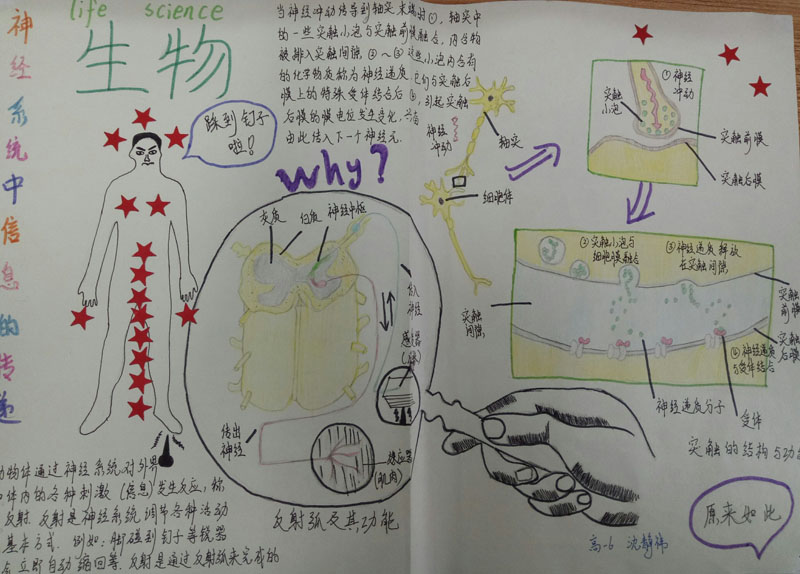 life science
生物
神经系统中信息的传递
当神经冲动传导到轴突末端时①，轴突中
的一些突触小泡与突触前膜融合，内含物
被排入突触间隙，②～③这些小泡内含有
的化学物质称为神经递质，它们与突触后
膜上的特殊受体结合后④，引起突触
后膜的膜电位发生变化，
由此传入下一个神经元。
踩到钉子
啦！
why?
灰质
白质
神经中枢
传入
神经
感受器
传出
神经
效应器
(肌肉)
反射弧及其功能
神经
冲动
轴突
细胞体
①神经
冲动
突触
小泡
突触前膜
突触后膜
②突触小泡与
细胞膜融合
③神经递质释放
在突触间隙
突触
间隙
突触
前膜
突触
后膜
④神经递质
与受体结合
神经递质分子
受体
突触的结构与功
动物体通过神经系统对外界
体内的各种刺激（信息）发生反应，称
反射。反射是神经系统调节各种活动
基本方式。例如：脚碰到钉子等锐器
会立即自动缩回等。反射是通过反射弧来完成的
原来如此
高一6 沈